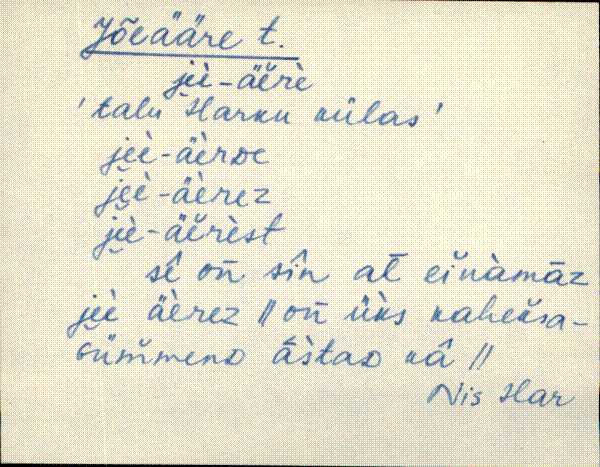 Jõeääre t.
jèè-äèrè
'talu Harku külas'
jèè-äèrde
jèè-äèrez
jèè-äèrèst
sê on̄ sîn at̄ eìnàmāz
jèè äèrez // on̄ üks kaheksa-
kümmend āstad kâ //
Nis Har